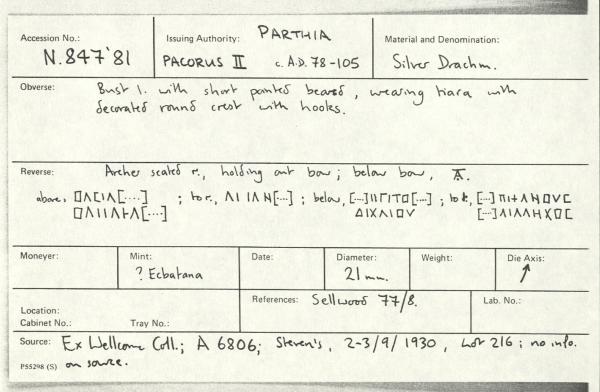 Accession No.: N.847'81
Issuing Authority: PARTHIA
PACORUS II c. A.D. 78-105
Material and Denomination: Silver Drachm.
Obverse: Bust l. with short pointed beard, wearing tiara with
decorated round crest with hooks.
Reverse: Archer seated r., holding out bow; below bow,
above, ; to r., ; below, ; to l.,
Moneyer:
Mint: ? Ecbatana
Date:
Diameter: 21 mm.
Weight:
Die Axis: ↗
Location:
Cabinet No.: Tray No.:
References: Sellwood 77/8.
Lab. No.:
Source: Ex Wellcome Coll.; A 6806; Steven's, 2-3/9/1930, Lot 216; no info.
P55298 (S) on source.